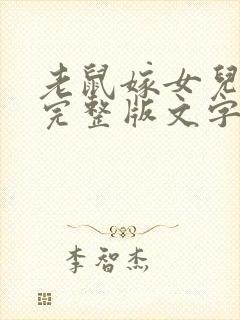 老鼠嫁女兒
完整版文字
李智杰